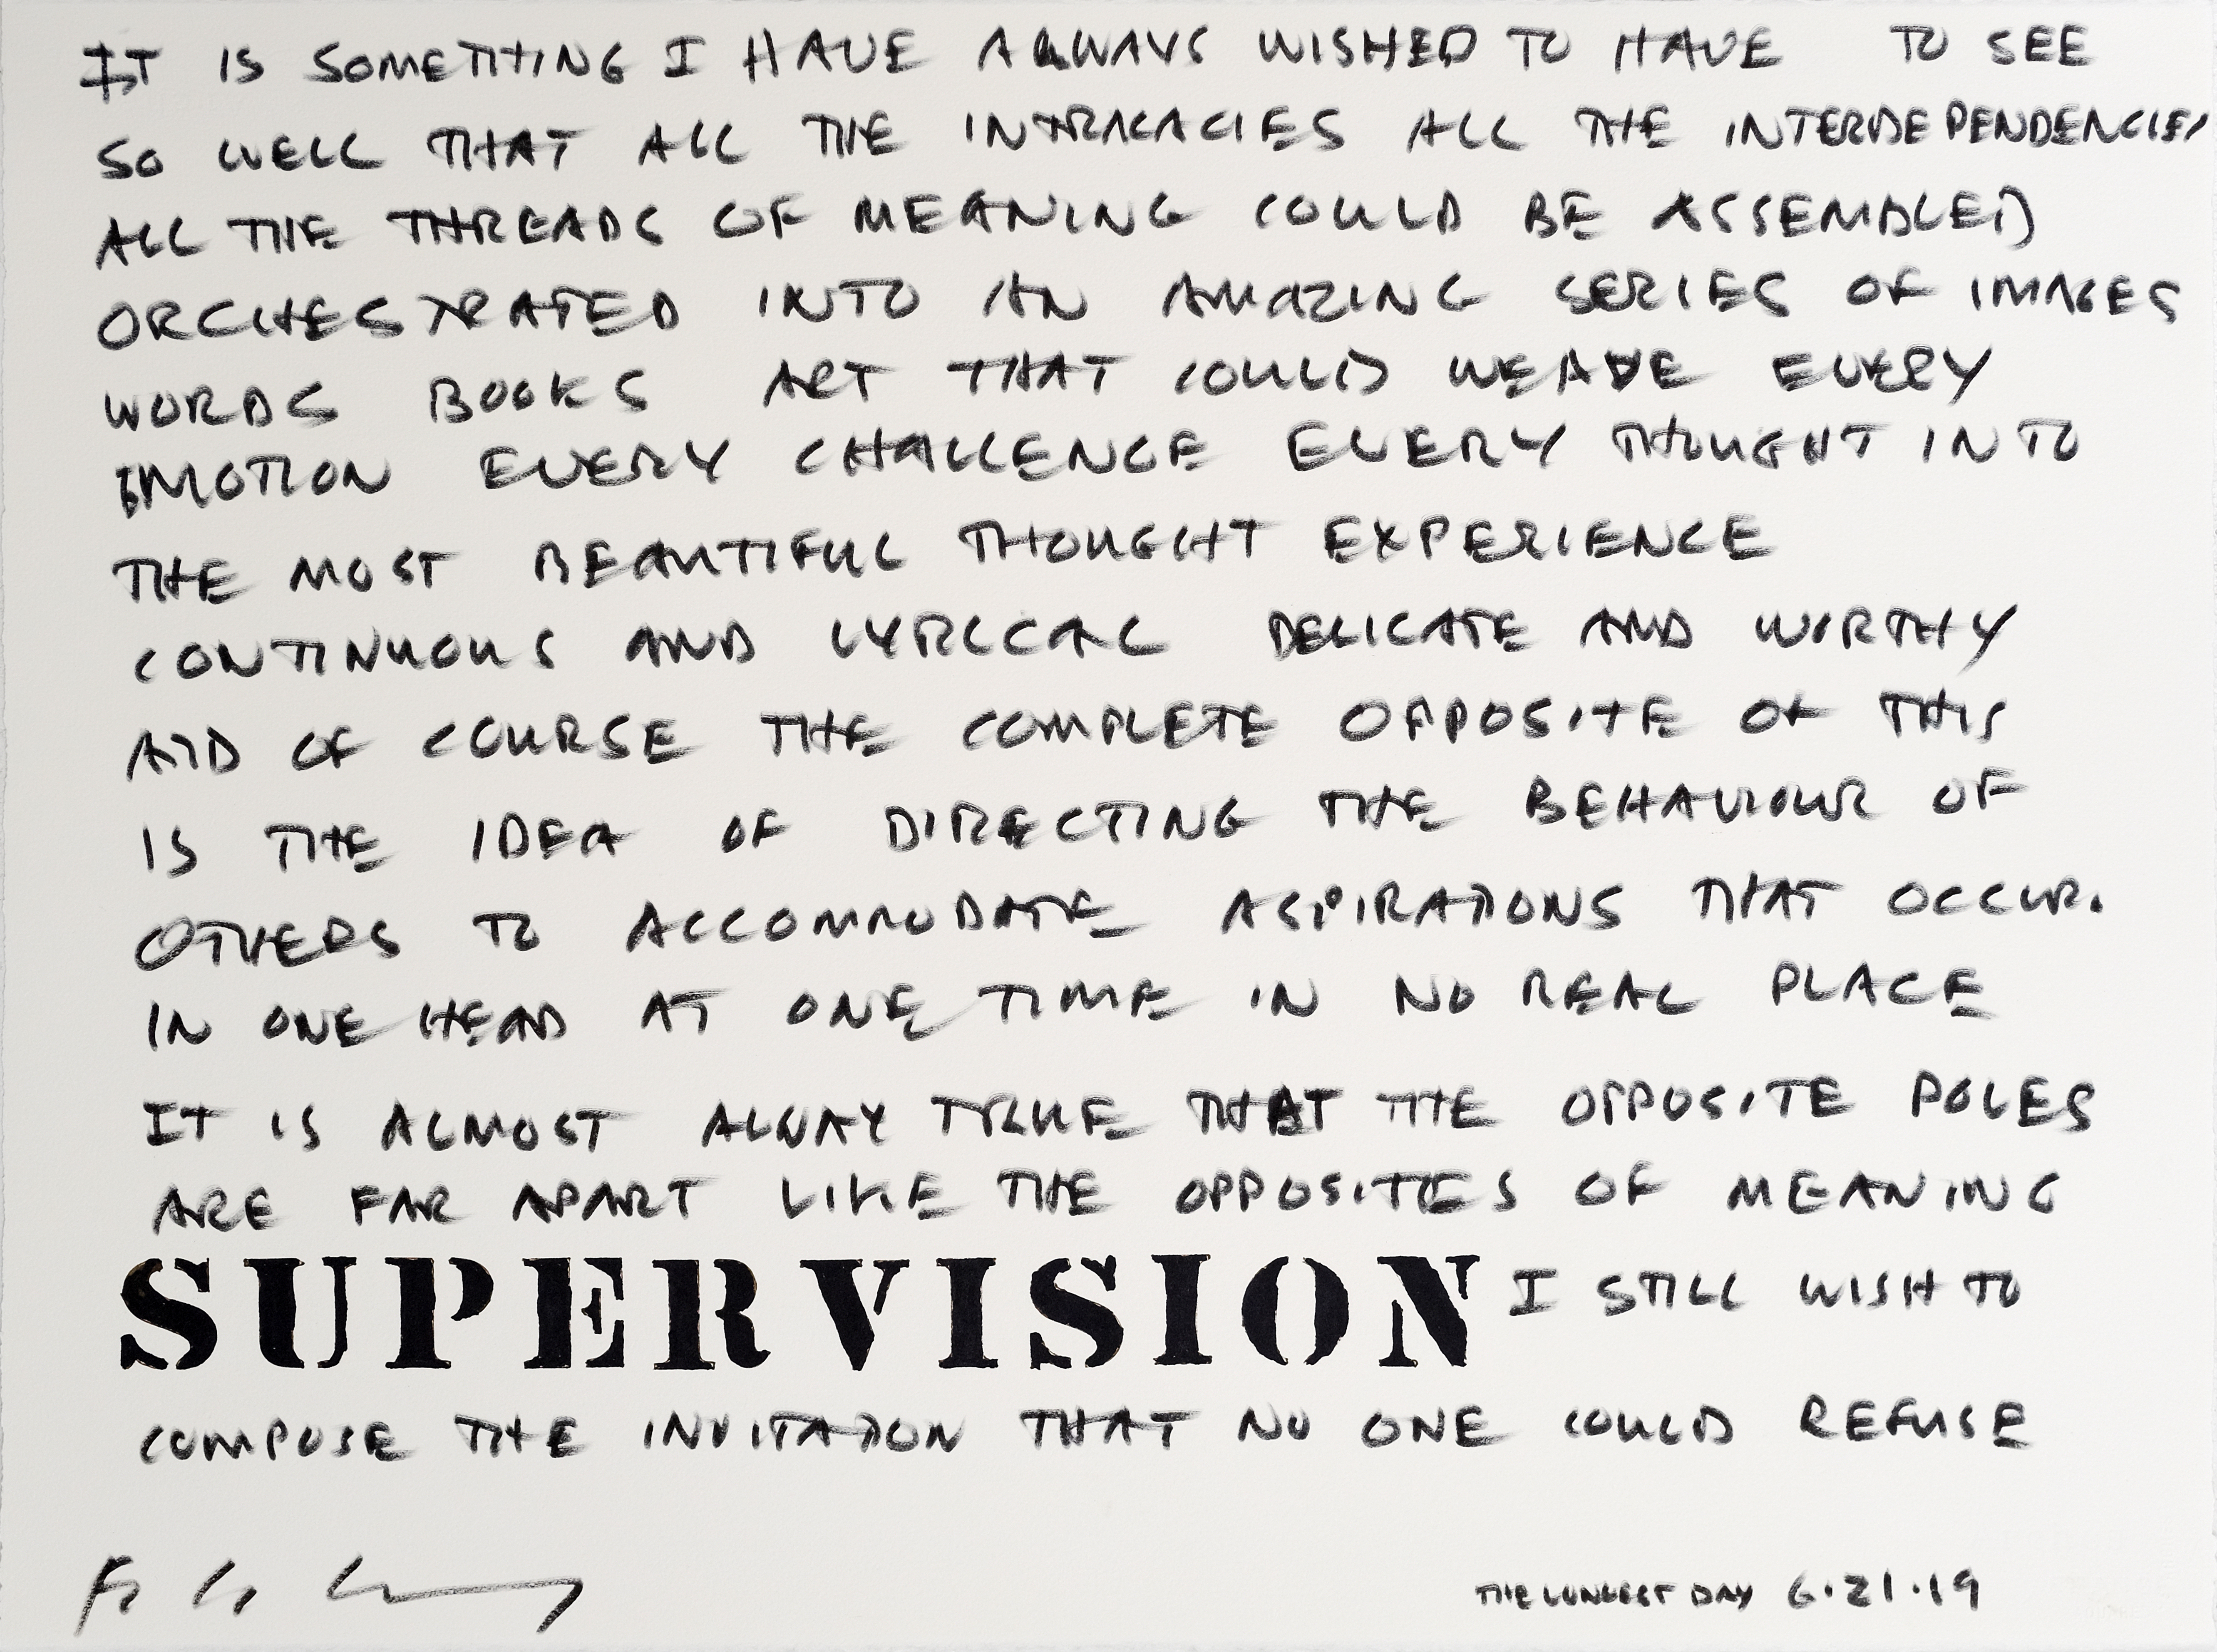 IT IS SOMETHING I HAVE ALWAYS WISHED TO HAVE TO SEE
SO WELL THAT ALL THE INTRICACIES ALL THE INTERDEPENDENCIES
ALL THE THREADS OF MEANING COULD BE ASSEMBLED
ORCHESTRATED INTO AN AMAZING SERIES OF IMAGES
WORDS BOOKS ART THAT COULD WEAVE EVERY
EMOTION EVERY CHALLENGE EVERY THOUGHT INTO
THE MOST BEAUTIFUL THOUGHT EXPERIENCE
CONTINUOUS AND LYRICAL DELICATE AND WORTHY
AND OF COURSE THE COMPLETE OPPOSITE OF THIS
IS THE IDEA OF DIRECTING THE BEHAVIOUR OF
OTHERS TO ACCOMMODATE ASPIRATIONS THAT OCCUR.
IN ONE HEAD AT ONE TIME IN NO REAL PLACE
IT IS ALMOST ALWAY TRUE THAT THE OPPOSITE POLES
ARE FAR APART LIKE THE OPPOSITES OF MEANING
SUPERVISION I STILL WISH TO
COMPOSE THE INVITATION THAT NO ONE COULD REFUSE
THE LONGEST DAY 6·21·19